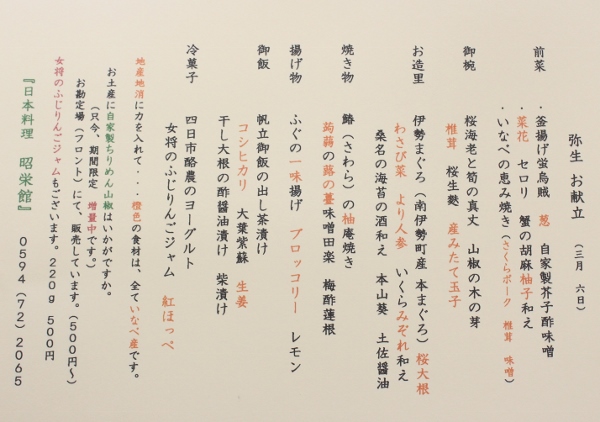 弥生 お献立 (三月 六日)
前菜 ・釜揚げ蛍烏賊 葱 自家製芥子酢味噌
・菜花 セロリ 蟹の胡麻柚子和え
・いなべの恵み焼き(さくらポーク 椎茸 味噌)
御椀 桜海老と筍の真丈 山椒の木の芽
椎茸 桜生麩 産みたて玉子
お造里 伊勢まぐろ(南伊勢町産 本まぐろ) 桜大根
わさび菜 より人参 いくらみぞれ和え
桑名の海苔の酒和え 本山葵 土佐醤油
焼き物 鰆(さわら)の柚庵焼き
蒟蒻の蕗の薹味噌田楽 梅酢蓮根
揚げ物 ふぐの一味揚げ ブロッコリー レモン
御飯 帆立御飯の出し茶漬け
コシヒカリ 大葉紫蘇 生姜
干し大根の酢醤油漬け 柴漬け
冷菓子 四日市酪農のヨーグルト
女将のふじりんごジャム 紅ほっぺ
地産地消に力を入れて・・・橙色の食材は、全ていなべ産です。
お土産に自家製ちりめん山椒はいかがですか。
(只今、期間限定 増量中です。)
お勘定場(フロント)にて、販売しています。(500円~)
女将のふじりんごジャムもございます。220g 500円
『日本料理 昭栄館』 0594(72)2065